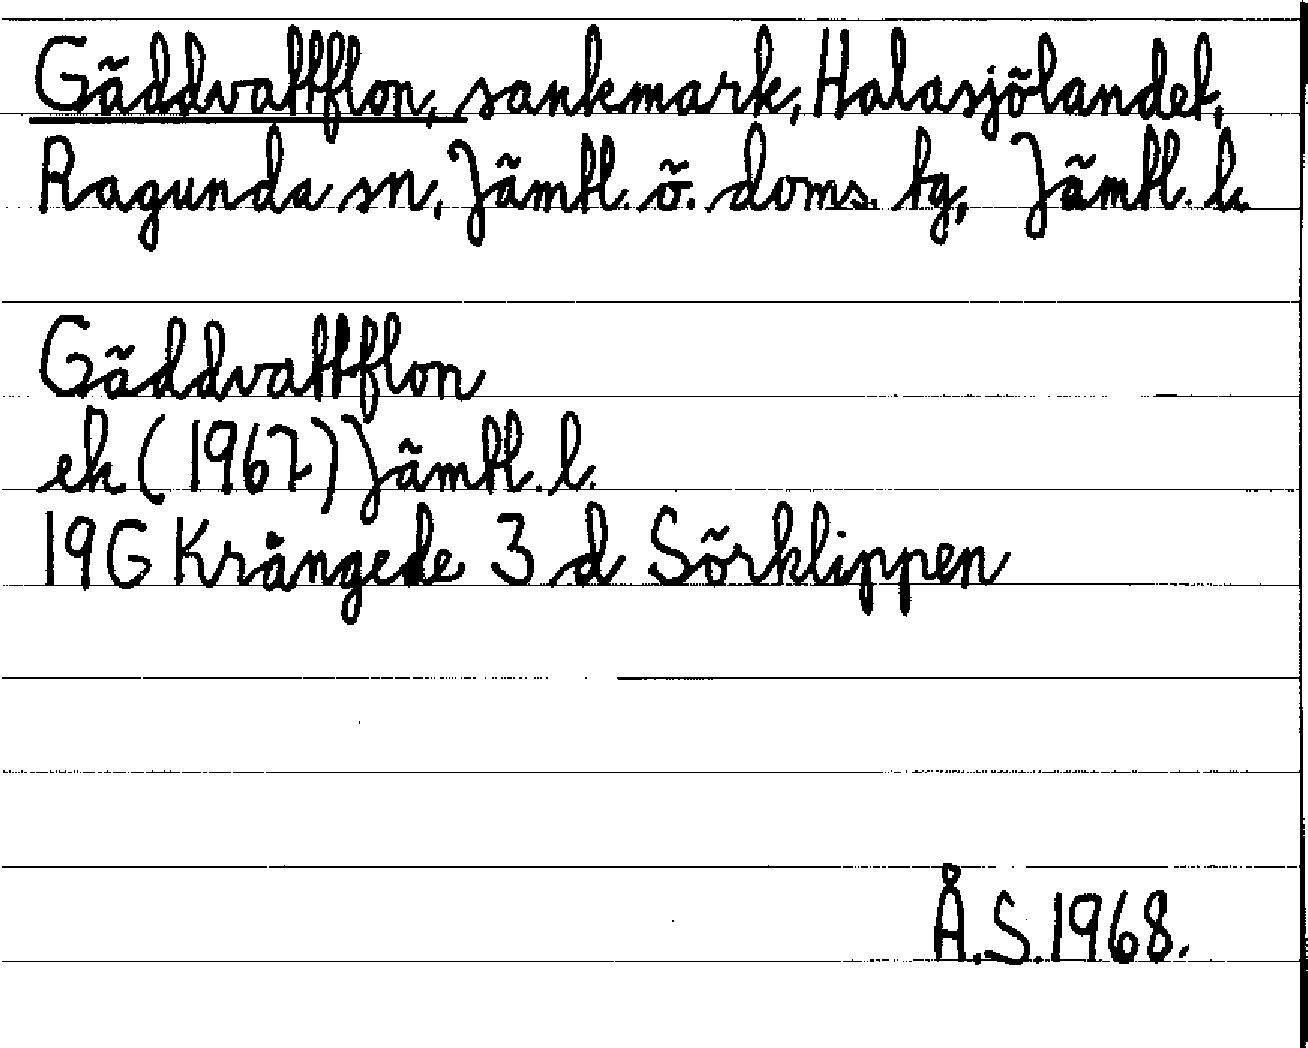 Gäddvattflon, sankmark, Halasjölandet,
Ragunda sn, Jämtl. ö. doms. tg, Jämtl. l.
Gäddvattflon
ek (1967) Jämtl. l.
19G Krångede 3 d Sörklippen
Å.S. 1968.